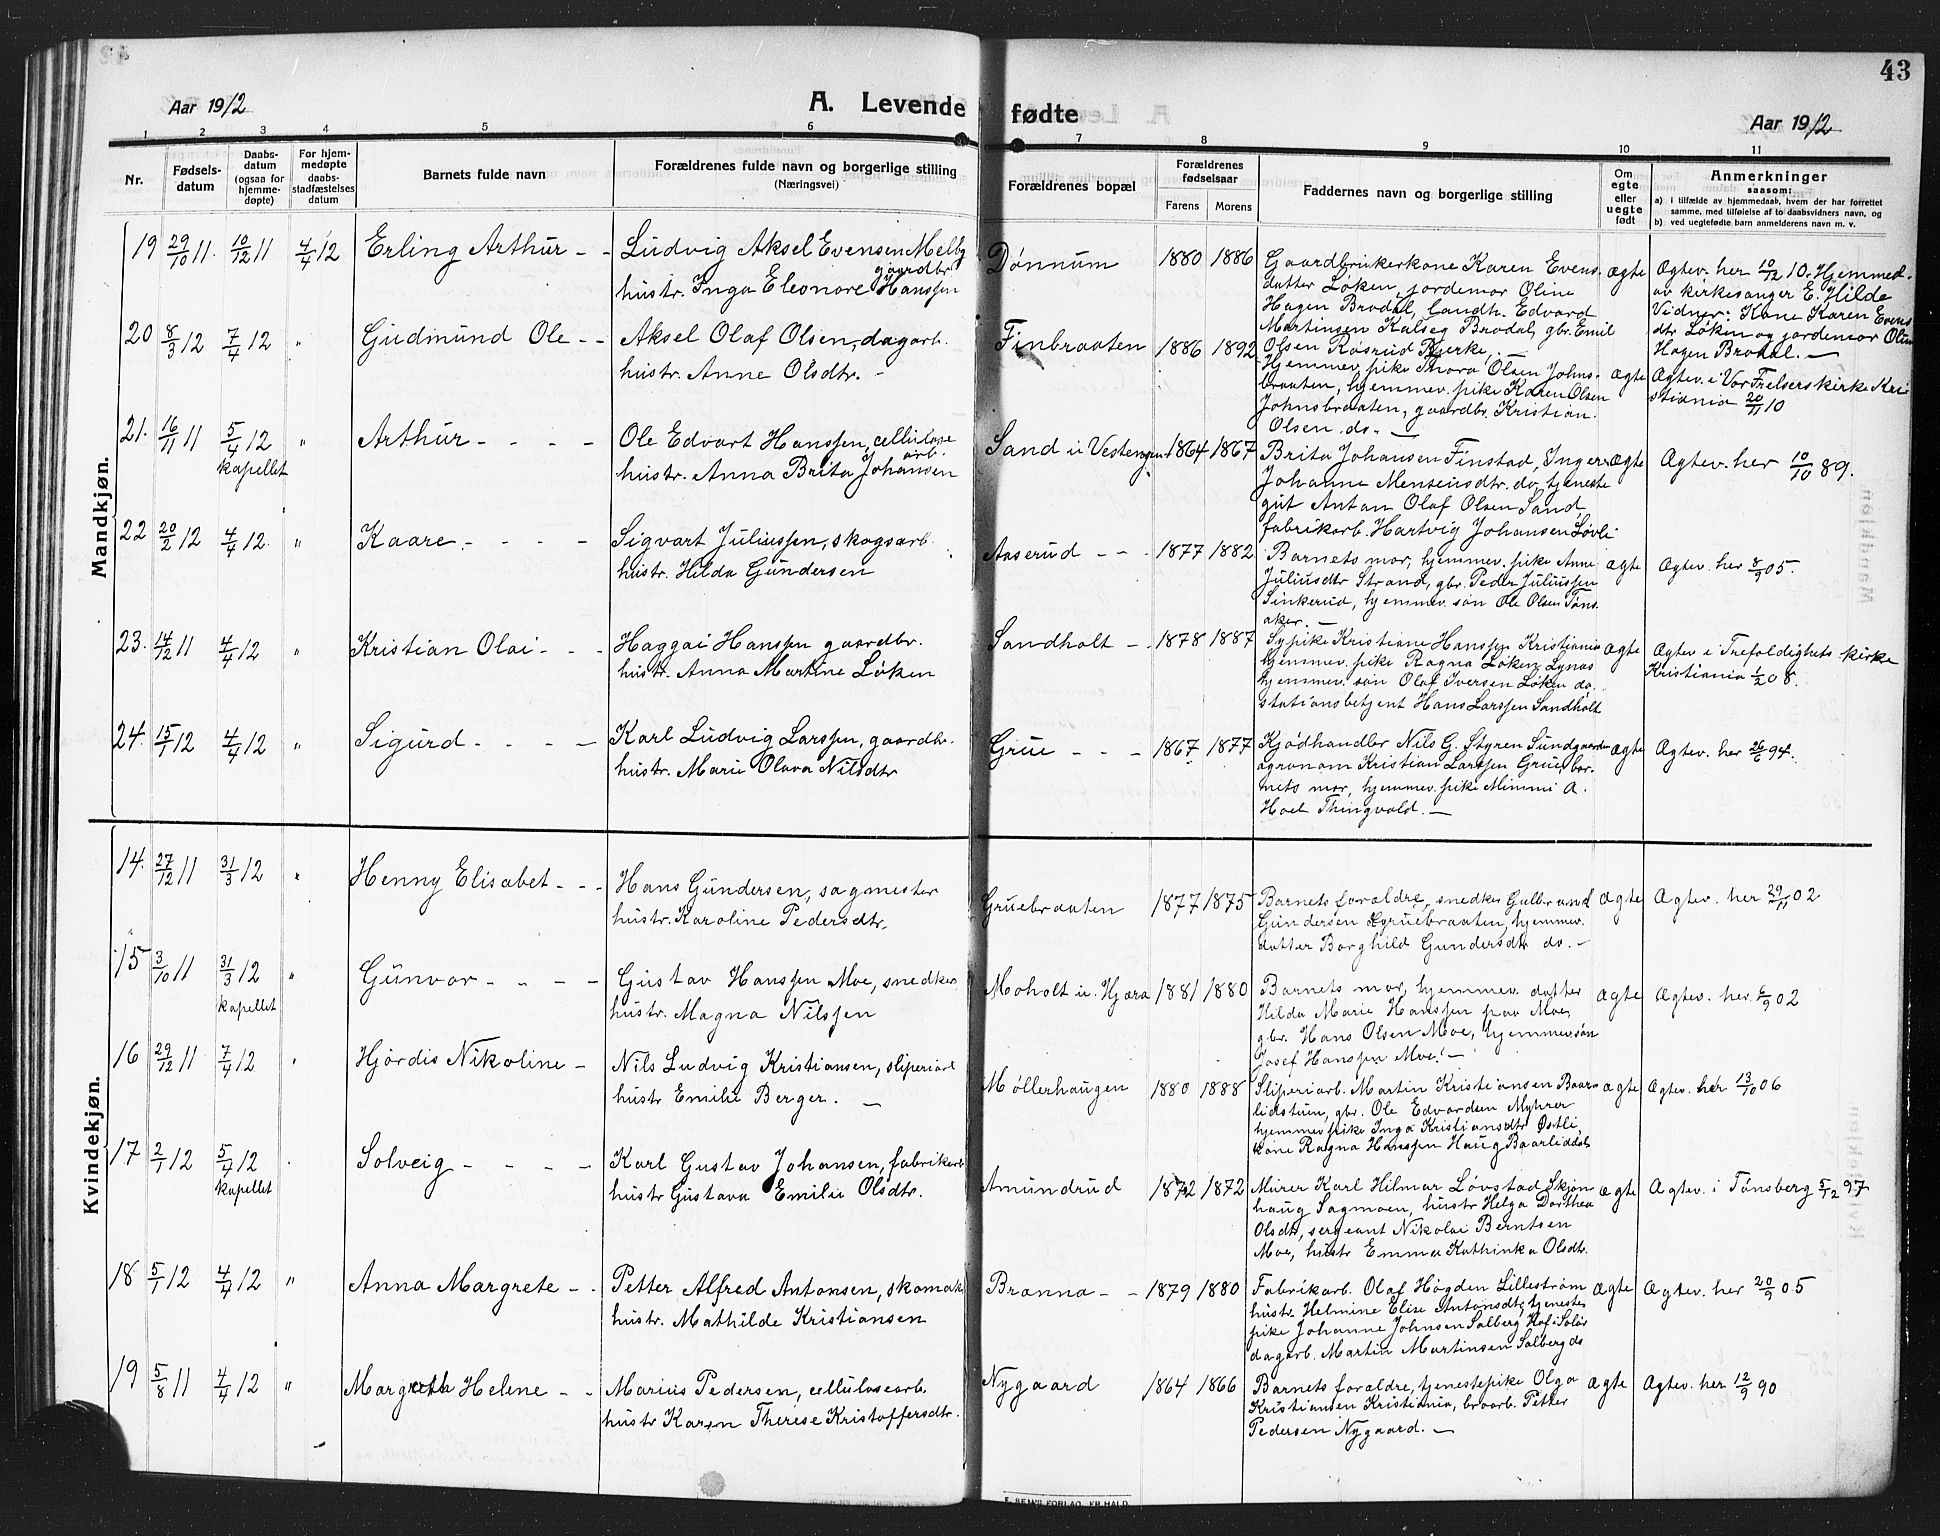 43
Aar 1912
A. Levende fødte
Aar 1912
1 2 3 4 5 6 7 8 9 10 11
Nr.
Fødsels-
datum
Daabs-
datum
(ogsaa for
hjemme-
døpte)
For hjem-
medøpte
daabs-
stadfæstelses
datum
Barnets fulde navn
Forældrenes fulde navn og borgerlige stilling
(Næringsvei)
Forældrenes bopæl
Forældrenes
fødselsaar
Farens Morens
Faddernes navn og borgerlige stilling
Om
egte
eller
uegte
født
Anmerkninger
saasom:
a) i tilfælde av hjemmedaab, hvem der har forrettet
samme, med tilføielse af to daabsvidners navn, og
b) ved uegtefødte barn anmelderens navn m. v.
Mandkjøn.
19 29/10 11. 10/12 11 4/4 12 Erling Arthur - -
Ludvig Aksel Evensen Melby
gaardbr.
hustr. Inga Eleonore Hanssen
Dønnum 1880 1886
Gaardbrukerkone Karen Evens-
datter Løken, jordemor Oline
Hagen Brodal, landh. Edvard
Martinsen Kalseg Brodal, gbr. Emil
Olsen Røsrud Bjerke.
ægte
Ægtev. her 10/12 10. Hjemmed.
av kirkesanger E. Hilde
Vidner: Kone Karen Evens
dtr Løken og jordemor Oline
Hagen Brodal. —
20 8/3 12 7/4 12 " Gudmund Ole - -
Aksel Olaf Olsen, dagarb.
hustr. Anne Olsdtr. -
Finbraaten 1886 1892
Hjemmev. pike Thora Olsen Johns-
braaten, hjemmev. pike Karen Olsen
Johnsbraaten, gaardbr. Kristian
Olsen do. —
ægte
Ægtev. i Vor Frelsers kirke Kri
stiania 20/11 10
21. 16/11 11 5/4 12 " Arthur - - - -
kapellet
Ole Edvart Hanssen, cellulose
arb.
hustr. Anna Brita Johansen
Sand u Vestengen 1864 1867
Brita Johansen Finstad, Inger
Johanne Menseusdtr. do, tjeneste
gut Anton Olaf Olsen Sand,
fabrikarb. Hartvig Johansen Løvli
ægte
Ægtev. her 10/10 89.
22 20/2 12 4/4 12. " Kaare. - - - -
Sigvart Juliussen, skogsarb.
hustr. Hilda Gundersen
Aaserud - - 1877 1882
Barnets mor, hjemmev. pike Anne
Juliusdtr Strand, gbr. Peder Juliussen
Sinkerud, hjemmev. søn Ole Olsen Tøns-
aker. —
ægte
Ægtev. her 8/9 05.
23. 14/12 11 4/4 12 " Kristian Olai - - -
Haggai Hanssen gaardbr.
hustr. Anna Martine Løken
Sandholt - 1878 1887
Sypike Kristiane Hanssen Kristiania
hjemmev. pike Ragna Løken Lynas
hjemmev. søn Olaf Iversen Løken do.
stationsbetjent Hans Larssen Sandholt
ægte
Ægtev i Trefoldighets kirke
Kristiania 1/2 08.
24. 15/1 12 4/4 12 " Sigurd - - - -
Karl Ludvig Larssen, gaardbr.
hustr. Marie Olava Nilsdtr
Grue - - - 1867 1877
Kjødhandler Nils G. Styren Sundgaarden
agronom Kristian Larssen Grue, bar-
nets mor, hjemmev. pike Mimmi A.
Hoel Thingvold. —
ægte
Ægtev. her 26/6 94.
Kvindekjøn.
14. 27/12 11 31/3 12 " Henny Elisabet - - -
Hans Gundersen, sagmester
hustr. Karoline Pedersdtr.
Gruebraaten 1877 1875
Barnets foraldre, snedker Gulbrand
Gundersen Gruebraaten, hjemmev.
datter Borghild Gundersdtr do. -
ægte
Ægtev. her 29/11 02
15 3/10 11 31/3 12 " Gunvor - - - -
kapellet
Gustav Hanssen Moe, snedker
hustr. Magna Nilssen
Moholt u. Hjæra 1881 1880
Barnets mor, hjemmev. datter
Hilda Marie Hanssen paa Moe,
gbr. Hans Olsen Moe, hjemmev. søn
Josef Hanssen Moe. —
ægte
Ægtev. her. 6/9 02
16 29/12 11 7/4 12 " Hjørdis Nikoline -
Nils Ludvig Kristiansen, sliperiarb
hustr Emilie Berger. —
Møllerhaugen 1880 1888
Sliperiarb. Martin Kristiansen Baar-
lidstuen, gbr. Ole Edvardsen Myhrer
hjemmev pike Inga Kristiansdtr Østli,
kone Ragna Hanssen Haug Baarliddal
ægte
Ægtev. her 13/10 06
17 2/1 12 5/4 12 Solveig - - - -
kapellet
Karl Gustav Johansen, fabrikarb
hustr Gustava Emilie Olsdtr.
Amundrud 1872 1872
Murer Karl Hilmar Løvstad Skjøn
haug Sagmoen, hustr Helga Dorthea
Olsdtr, sergeant Nikolai Berntsen
Moe, hustr Emma Kathinka Olsdtr.
ægte
Ægtev. i Tønsberg 5/12 97
18 5/1 12 4/4 12 " Anna Margrete - -
Petter Alfred Antonsen, skomak.
hustr. Mathilde Kristiansen
Branna - - 1879 1880
Fabrikarb. Olaf Høgden Lillestrøm
hustr. Helmine Elise Antonsdtr, tjeneste
pike Johanne Johnsen Solberg Hof i Solør
dagarb. Martin Martinsen Solberg do
ægte
Ægtev. her 20/9 05
19 5/8 11 4/4 12 " Margreth Helene - -
Marius Pedersen, cellulosearb.
hustr Karen Therese Kristoffersdtr.
Nygaard 1864 1866
Barnets foraldre, tjenestepike Olga
Kristiansen Kristiania, broarb. Petter
Pedersen Nygaard. —
ægte
Ægtev. her 12/9 90
E. SEM'S FORLAG, FR.HALD.